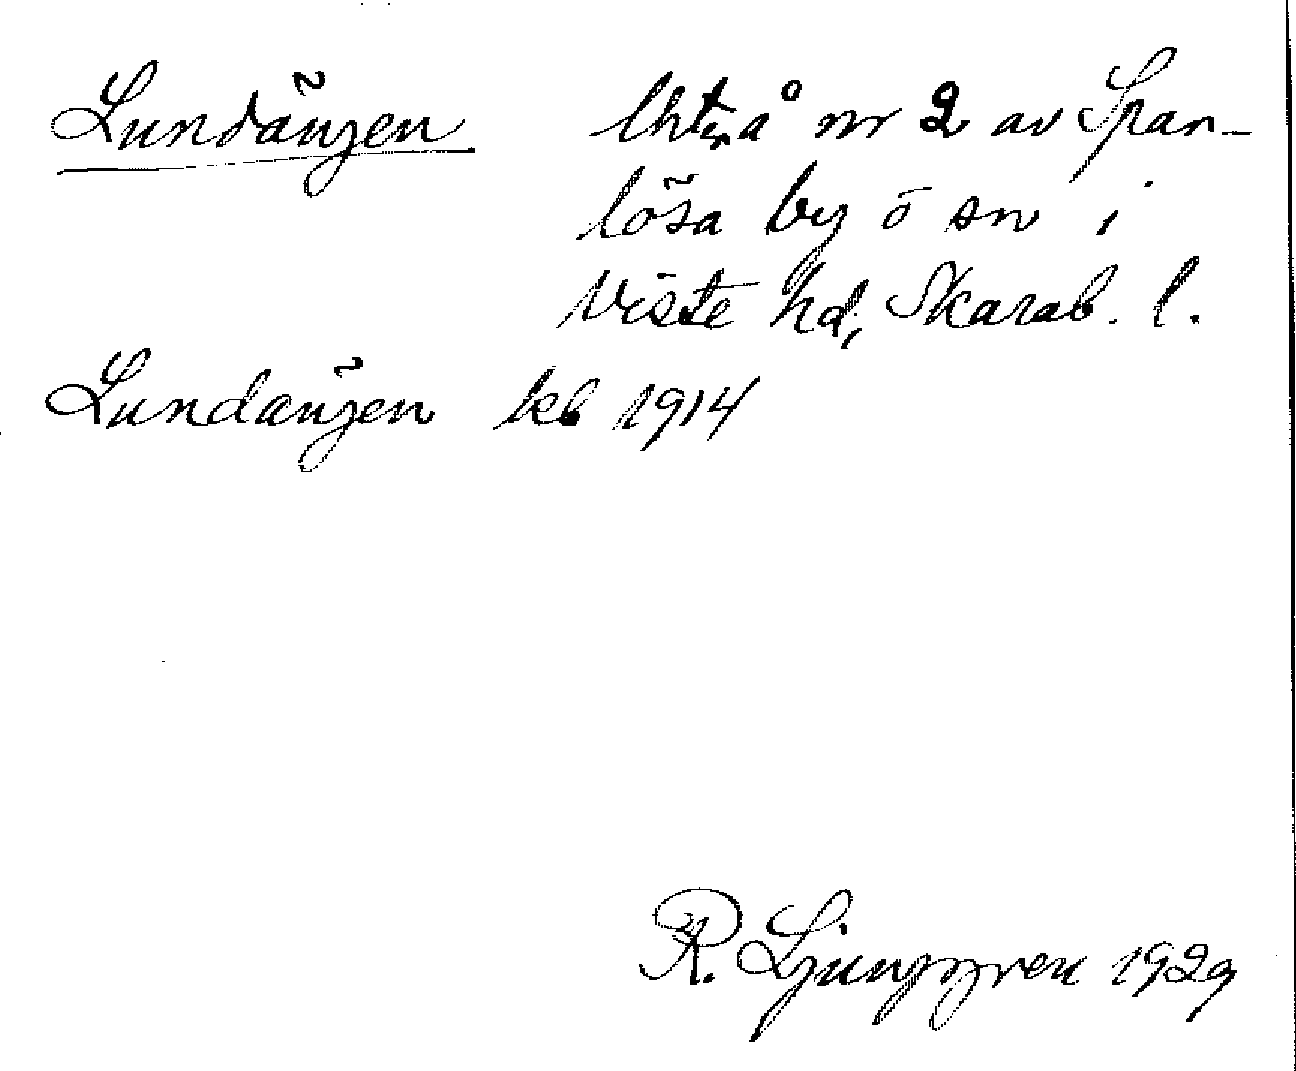 Lundängen lht. å nr 2 av Span-
lösa by o sn i
Viste hd, Skarab. l.
Lundängen kb 1914
R. Ljunggren 1929